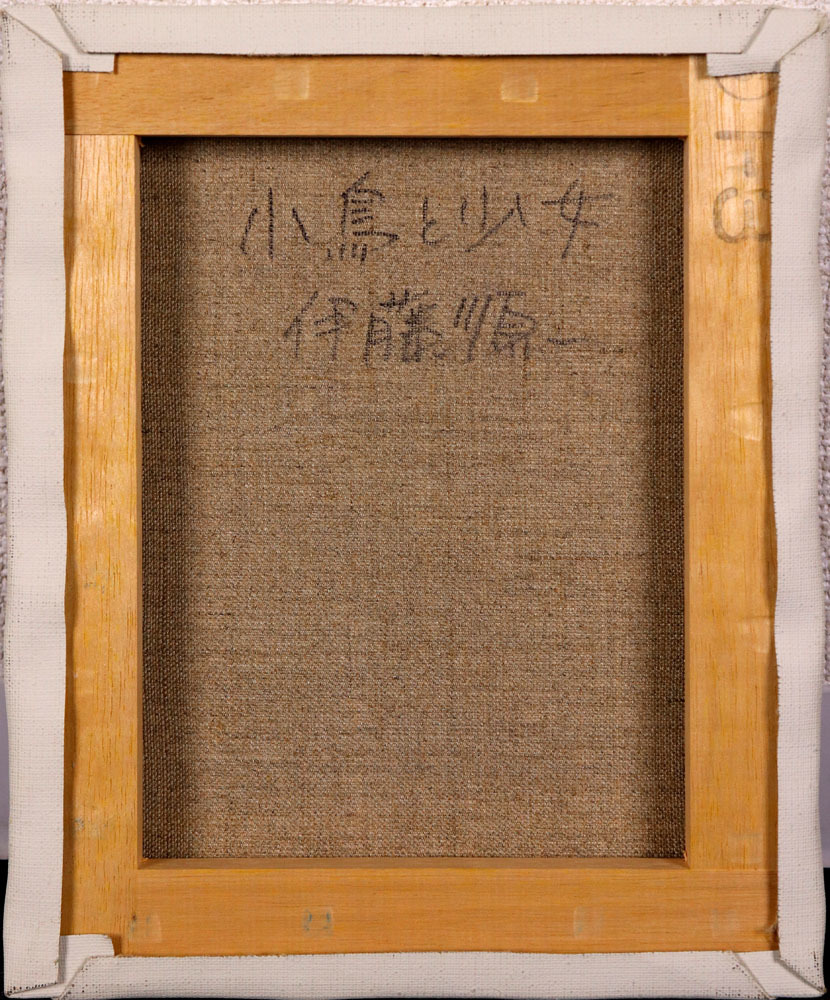 小鳥と少女
伊藤順一